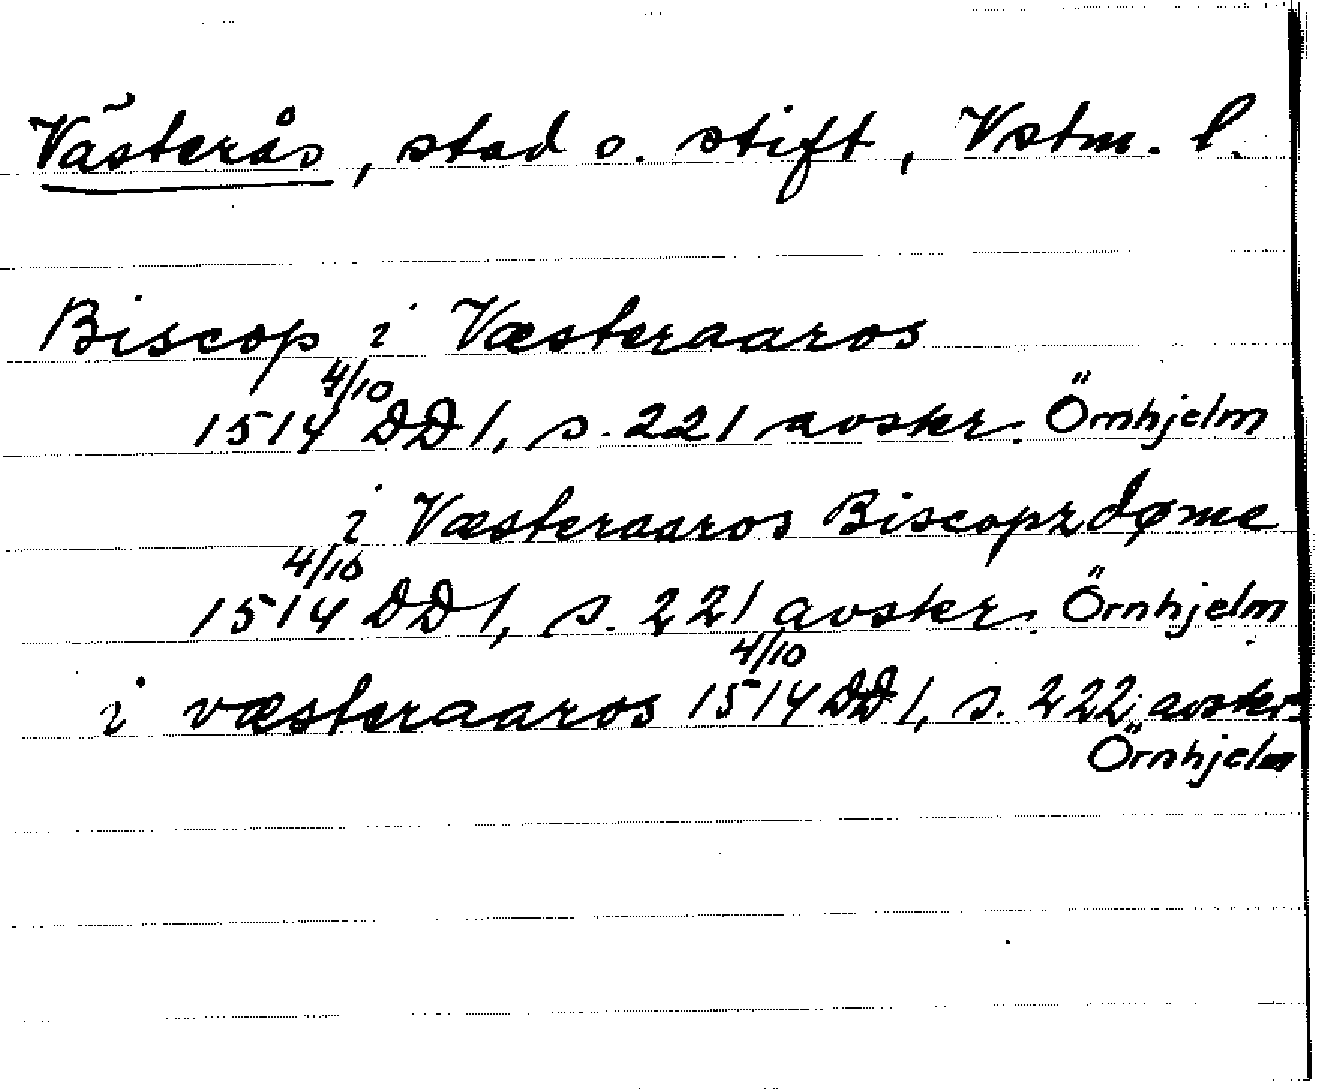 Västerås, stad o. stift, Vstm. l.
Biscop i Væsteraaros
1514 4/10 DD1, s. 221 avskr. Örnhjelm
i Væsteraaros Biscopzdøme
1514 4/10 DD1, s. 221 avskr. Örnhjelm
i væsteraaros 1514 4/10 DD1, s. 222, avskr.
Örnhjelm